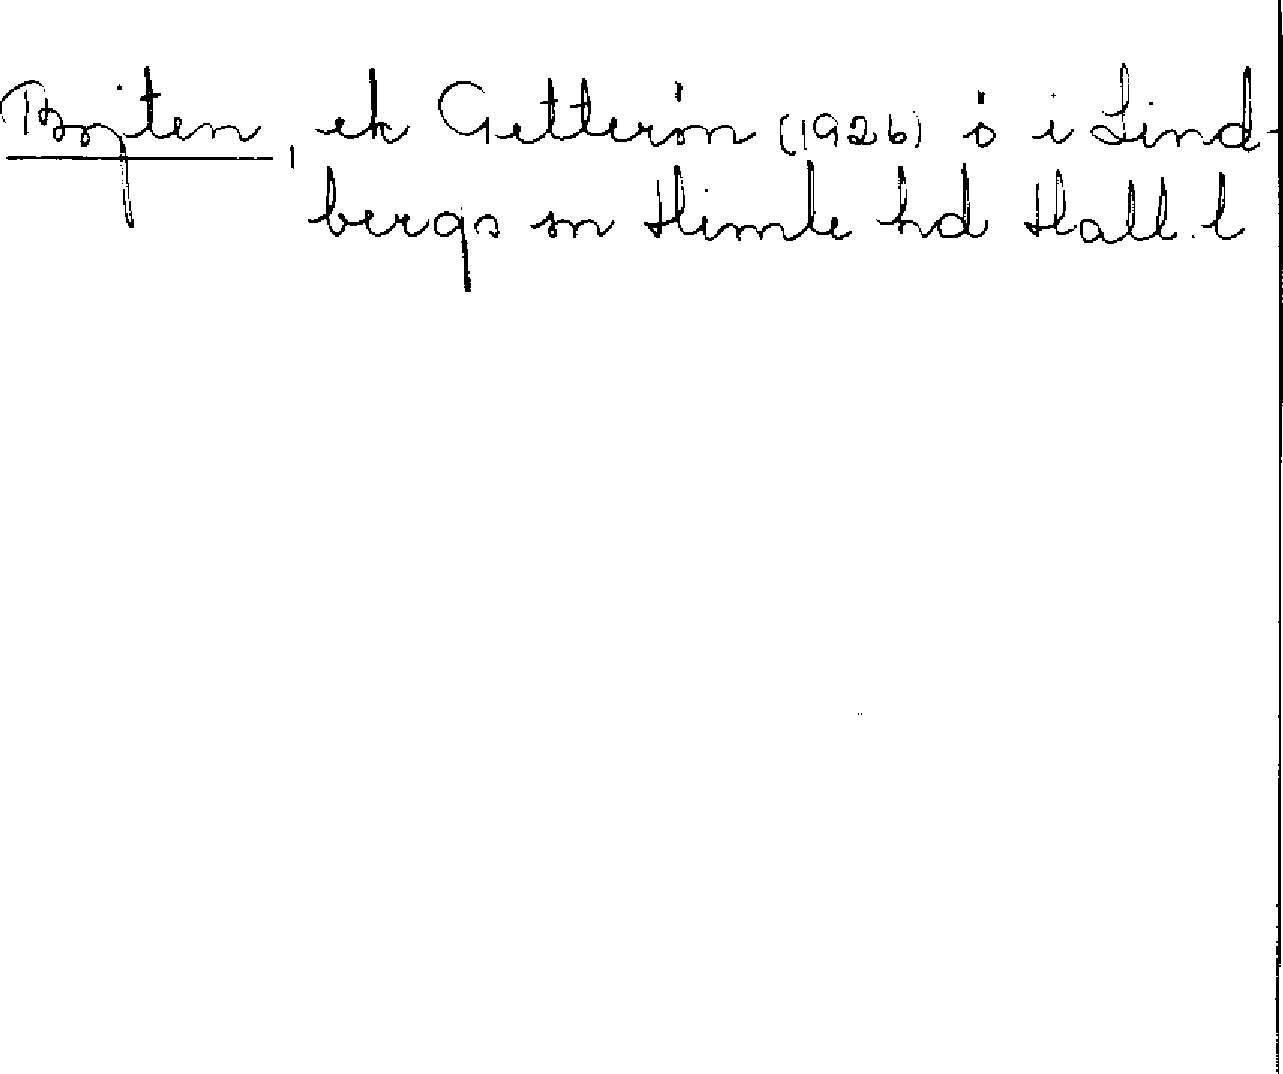 ek Getterön (1926) ö i Lind-
bergs sn Himle hd Hall. l